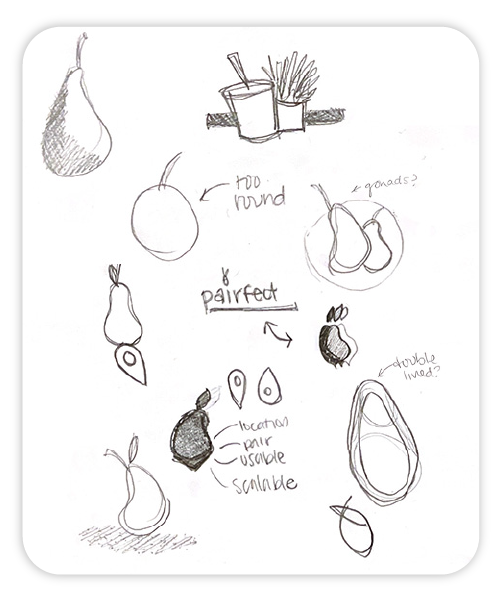 too
round
gonads?
pairfect
double
lined?
location
pair
usable
scalable